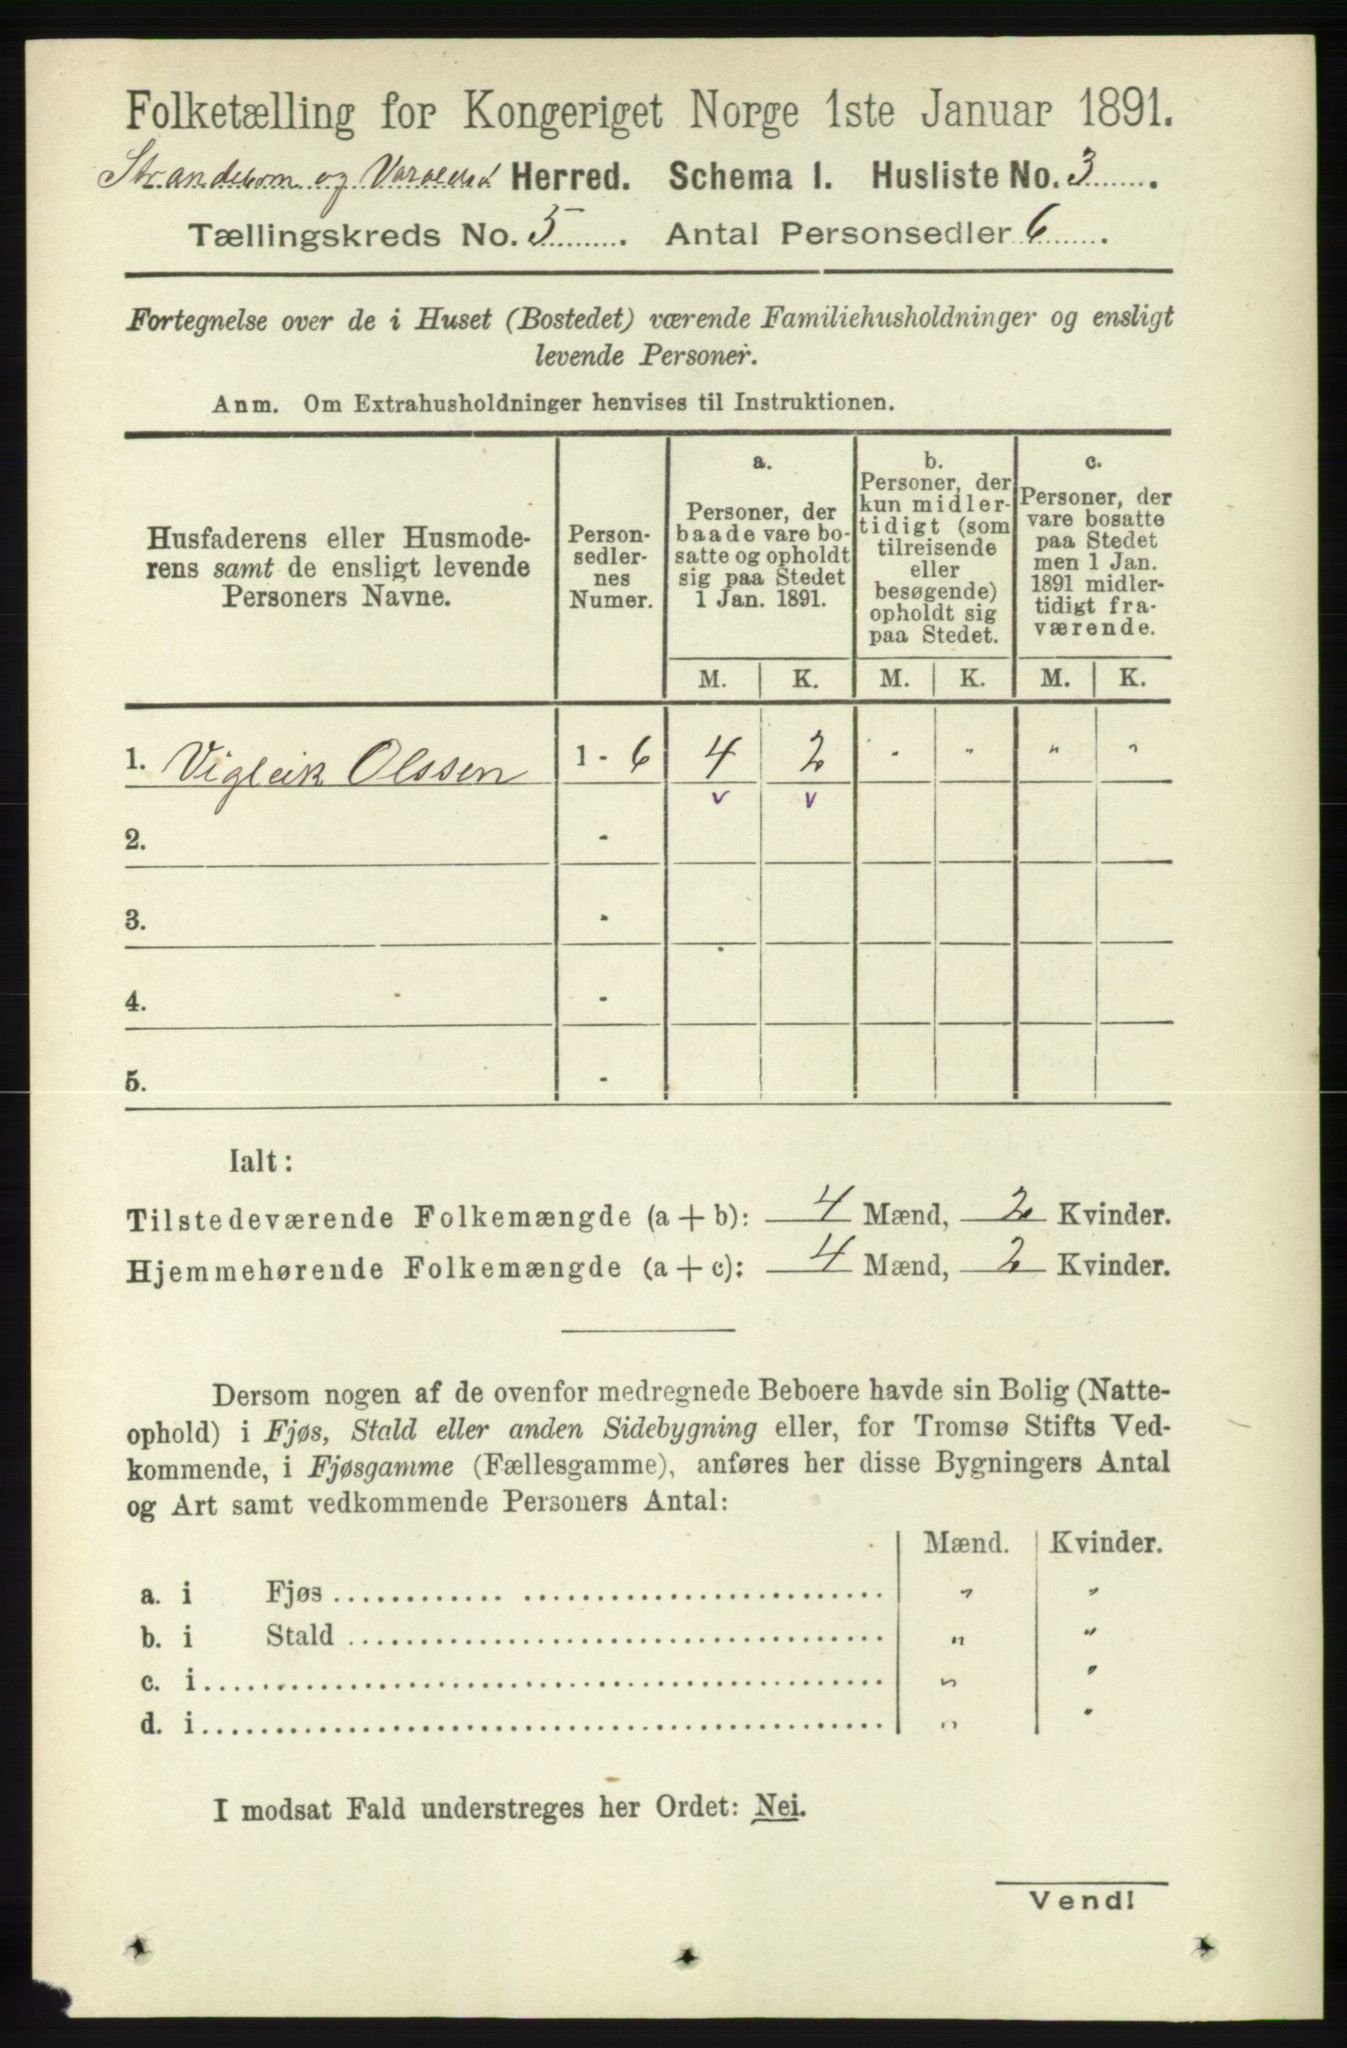 Folketælling for Kongeriget Norge 1ste Januar 1891.
Strandebarm og Varaldsø Herred. Schema I. Husliste No. 3
Tællingskreds No. 5. Antal Personsedler 6.
Fortegnelse over de i Huset (Bostedet) værende Familiehusholdninger og ensligt
levende Personer.
Anm. Om Extrahusholdninger henvises til Instruktionen.
Husfaderens eller Husmode-
rens samt de ensligt levende
Personers Navne.
Person-
sedler-
nes
Numer.
a.
Personer, der
baade vare bo-
satte og opholdt
sig paa Stedet
1 Jan. 1891.
b.
Personer, der
kun midler-
tidigt (som
tilreisende
eller
besøgende)
opholdt sig
paa Stedet.
c.
Personer, der
vare bosatte
paa Stedet
men 1 Jan.
1891 midler-
tidigt fra-
værende.
M. K. M. K. M. K.
1. Vigleik Olssen 1 - 6 4 2 " " " "
v v
2. -
3. -
4. -
5. -
Ialt:
Tilstedeværende Folkemængde (a + b): 4 Mænd, 2 Kvinder.
Hjemmehørende Folkemængde (a + c): 4 Mænd, 2 Kvinder.
Dersom nogen af de ovenfor medregnede Beboere havde sin Bolig (Natte-
ophold) i Fjøs, Stald eller anden Sidebygning eller, for Tromsø Stifts Ved-
kommende, i Fjøsgamme (Fællesgamme), anføres her disse Bygningers Antal
og Art samt vedkommende Personers Antal:
Mænd. Kvinder.
a. i Fjøs " "
b. i Stald " "
c. i " "
d. i " "
I modsat Fald understreges her Ordet: Nei.
Vend!